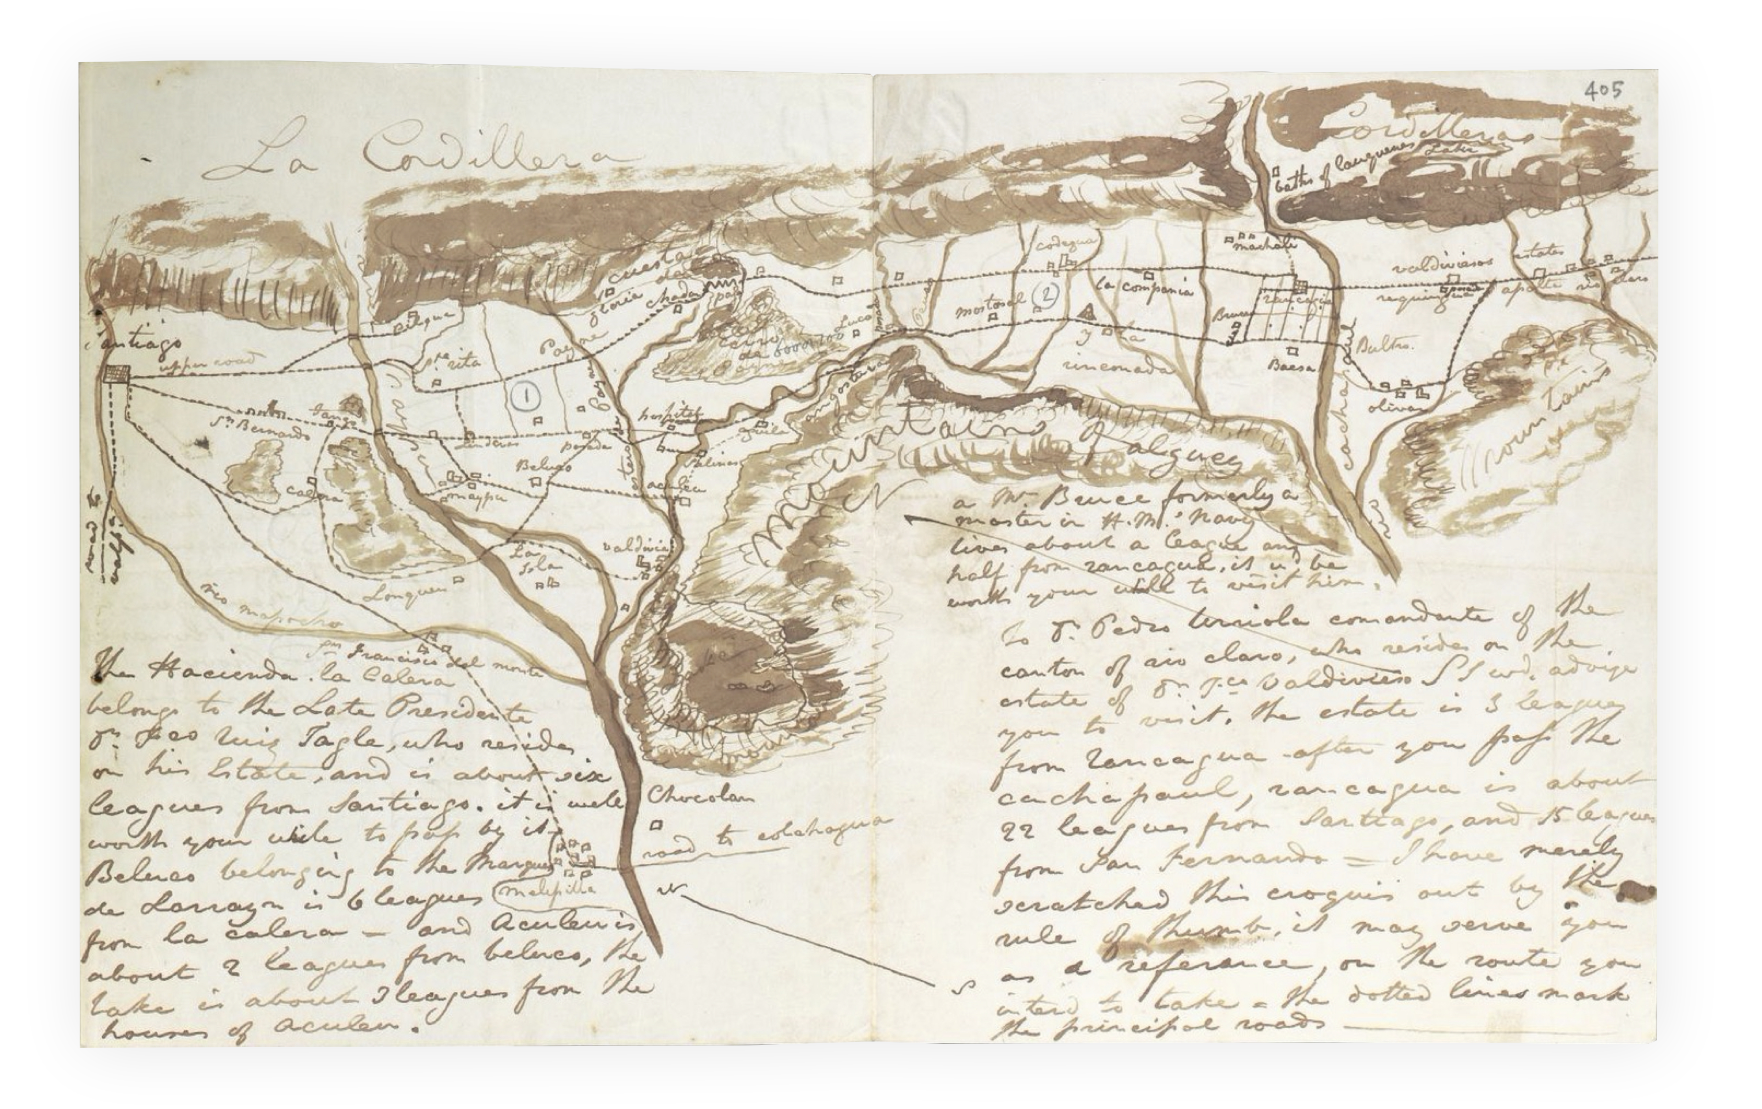 405
La Cordillera
Cordilleras
baths of cauquenes
Lake
Santiago
upper road
machali
codegua
la compania
valdiviesos estates
requingua
rio claro
rancagua
mostosal
2
cuesta de
chada
Payne
Sta rita
1
cerro de
Payne
Bruce
Baesa
Bultro.
olivar
y la
rinconada
angostura
hospital
Sn Bernardo
calera
Linderos
posada
Beluco
maypu
aculeu
mountains of alguey
mountains
cachapual
rio
road to
valpo
La Isla
valdivia
Lonquen
rio mapocho
San Francisco del monte
the Hacienda. la Calera
belongs to the Late Presidente
Dn Fco Ruiz Tagle, who resides
on his Estate, and is about six
leagues from Santiago. it is well
worth your while to pass by it
Beluco belonging to the Marques
de Larrayn is 6 leagues
from la calera – and Aculeu is
about 2 leagues from beluco, the
lake is about 3 leagues from the
houses of aculeu.
melipilla
Chocolan
road to colchagua
N
S
N
a Mr. Bruce formerly a
master in H.M.s Navy
lives about a league and
half from rancagua, it wd. be
worth your while to visit him.
S
To Dn. Pedro Urriola comandante of the
canton of rio claro, who resides on the
estate of Dn. Fco Valdivieso I wd. advise
you to visit. the estate is 3 leagues
from rancagua after you pass the
cachapaul, rancagua is about
22 leagues from Santiago, and 15 leagues
from San Fernando = I have merely
scratched this croquis out by the
rule of thumb, it may serve you
as a reference, on the route you
intend to take = the dotted lines mark
the principal roads